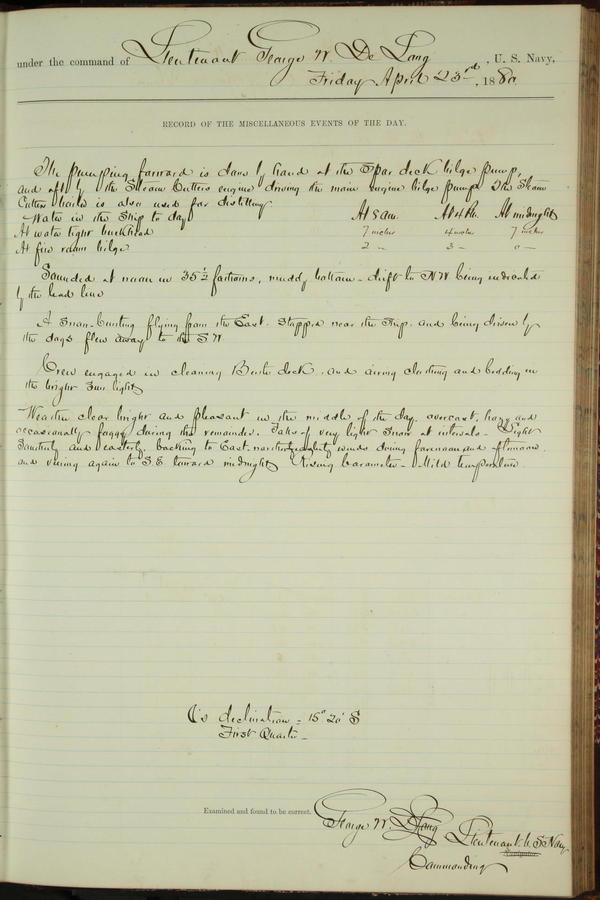 under the command of Lieutenant George W. De Long, U. S. Navy,
Friday April 23rd, 1880
RECORD OF THE MISCELLANEOUS EVENTS OF THE DAY.
The pumping forward is done by hand at the Spar deck bilge pump,
and aft by the Steam Cutters engine driving the main engine bilge pump. The Steam
Cutter boiler is also used for distilling
Water in the Ship to day At 8 am. At 4 Pm. At midnight
At water tight bulkhead 7 inches 4 inches 7 inches
At fire room bilge 2 " 3 " 0 "
Sounded at noon in 35 1/2 fathoms, muddy bottom - drift to NW being indicated
by the lead line
A Snow-bunting flying from the East. Stopped near the Ship. and being driven by
the dogs flew away to the SW
Crew engaged in cleaning Berth deck, and airing clothing and bedding in
the bright Sun light
Weather clear bright and pleasant in the middle of the day. overcast, hazy and
occasionally foggy during the remainder. Falls of very light Snow at intervals - Light
Southerly and easterly, backing to East. northeasterly winds during forenoon and afternoon.
and veering again to S.E. toward midnight Rising barometer - Mild temperature.
☾'s declination = 15° 20' S
First Quarter
Examined and found to be correct.
George W. De Long Lieutenant U. S. Navy
Commanding